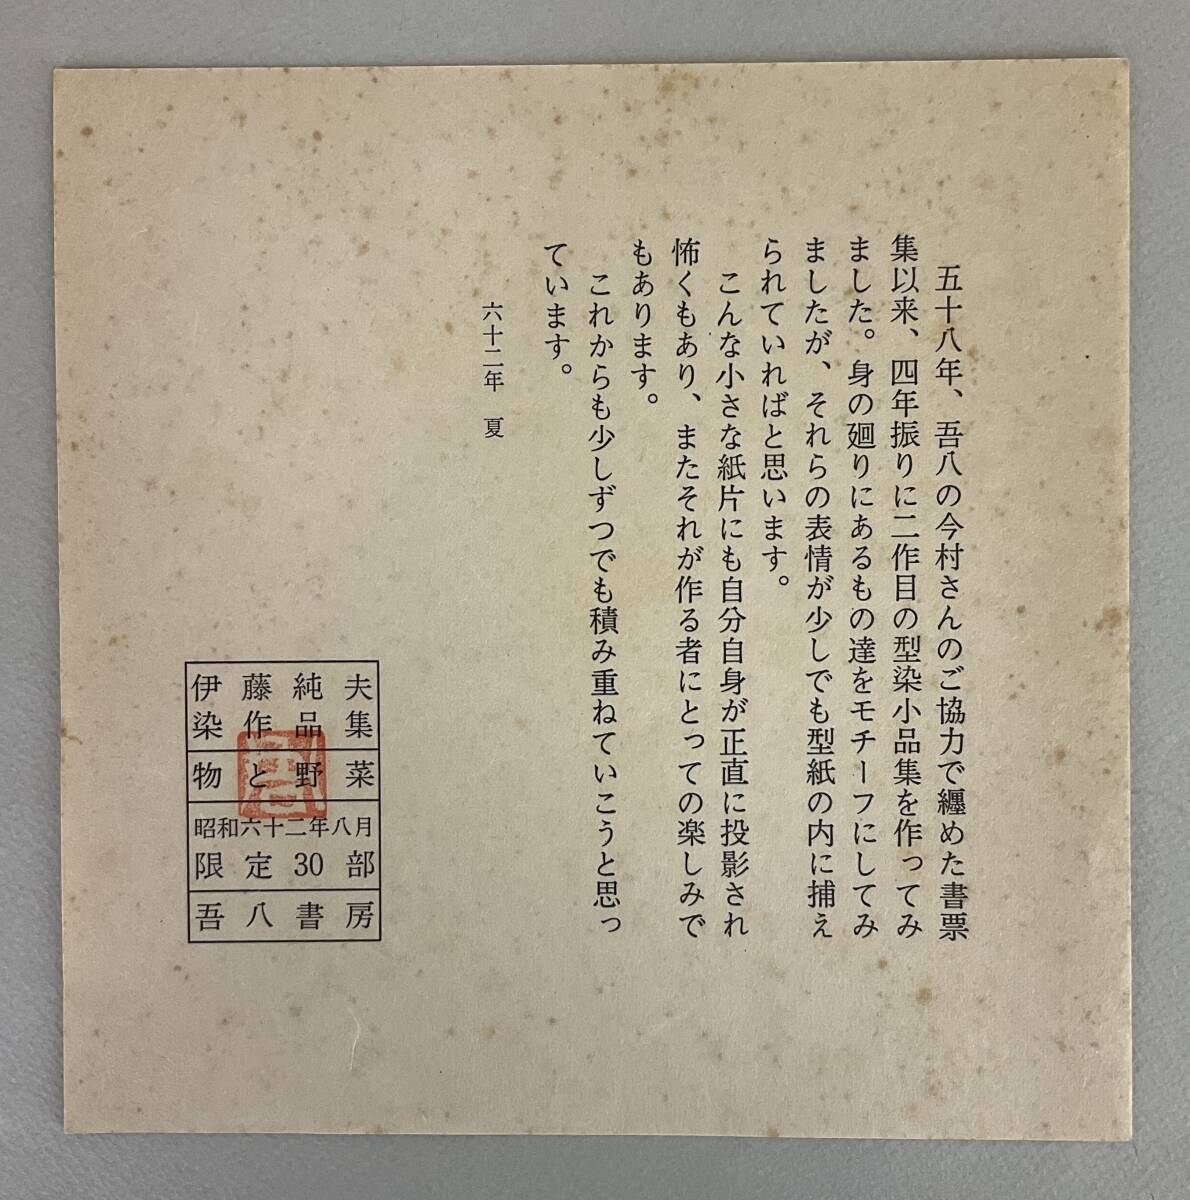 五十八年、吾八の今村さんのご協力で纒めた書票
集以来、四年振りに二作目の型染小品集を作ってみ
ました。身の廻りにあるもの達をモチーフにしてみ
ましたが、それらの表情が少しでも型紙の内に捕え
られていればと思います。
こんな小さな紙片にも自分自身が正直に投影され
怖くもあり、またそれが作る者にとっての楽しみで
もあります。
これからも少しずつでも積み重ねていこうと思っ
ています。
六十二年 夏
伊藤純夫
染作品集
物と野菜
昭和六十二年八月
限定30部
吾八書房